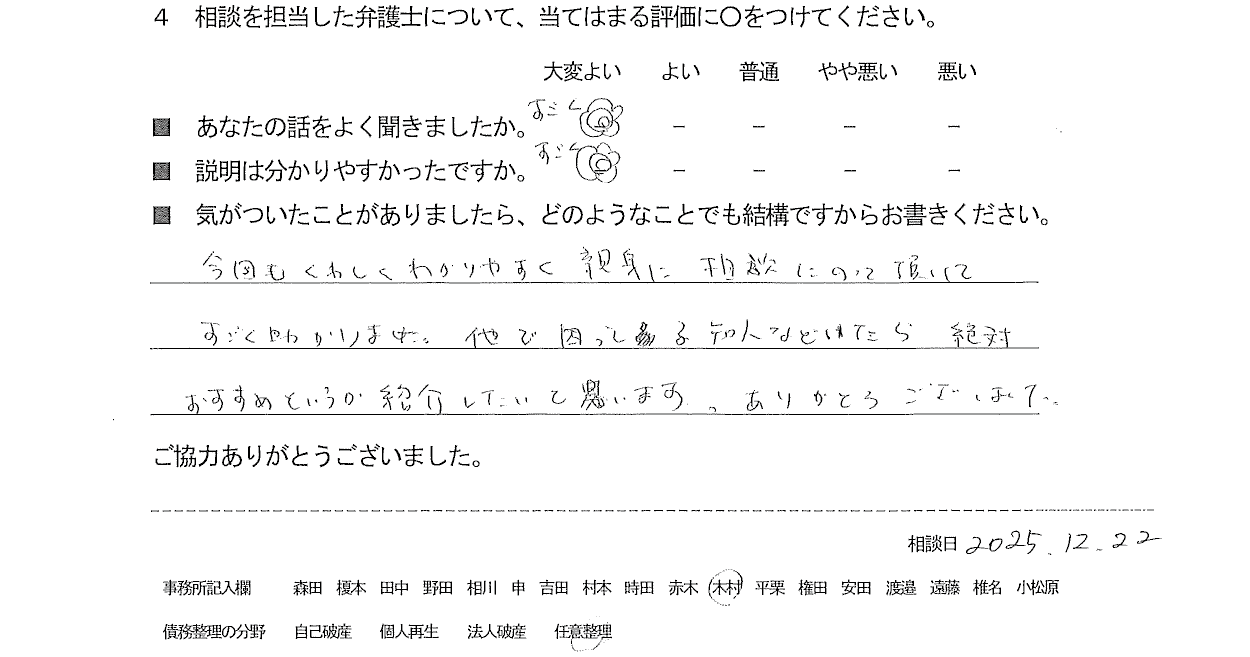 4 相談を担当した弁護士について、当てはまる評価に〇をつけてください。
大変よい よい 普通 やや悪い 悪い
■ あなたの話をよく聞きましたか。 すごく － － － －
■ 説明は分かりやすかったですか。 すごく － － － －
■ 気がついたことがありましたら、どのようなことでも結構ですからお書きください。
今回もくわしくわかりやすく親身に相談にのって頂いて
すごく助かりました。他で困ってる知人などいたら絶対
おすすめというか紹介したいと思います。ありがとうございました。
ご協力ありがとうございました。
相談日 2025.12.22
事務所記入欄 森田 榎本 田中 野田 相川 申 吉田 村本 時田 赤木 木村 平栗 権田 安田 渡邉 遠藤 椎名 小松原
債務整理の分野 自己破産 個人再生 法人破産 任意整理